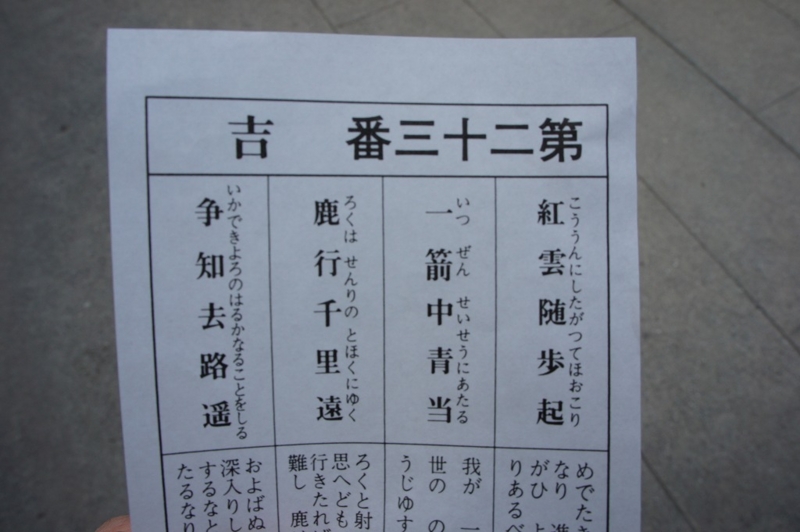 第二十三番 吉
紅雲随歩起
こううんにしたがつてほおこり
一箭中青当
いつ ぜん せいせうにあたる
鹿行千里遠
ろくは せんりの とほくにゆく
争知去路遥
いかできよろのはるかなることをしる
めでたき
なり 進
がひ よ
りあるべ
我が 一
世の の
うじゆす
ろくと射
思へども
行きたれば
難し 鹿
およばぬ
深入りし
するなと
たるなり